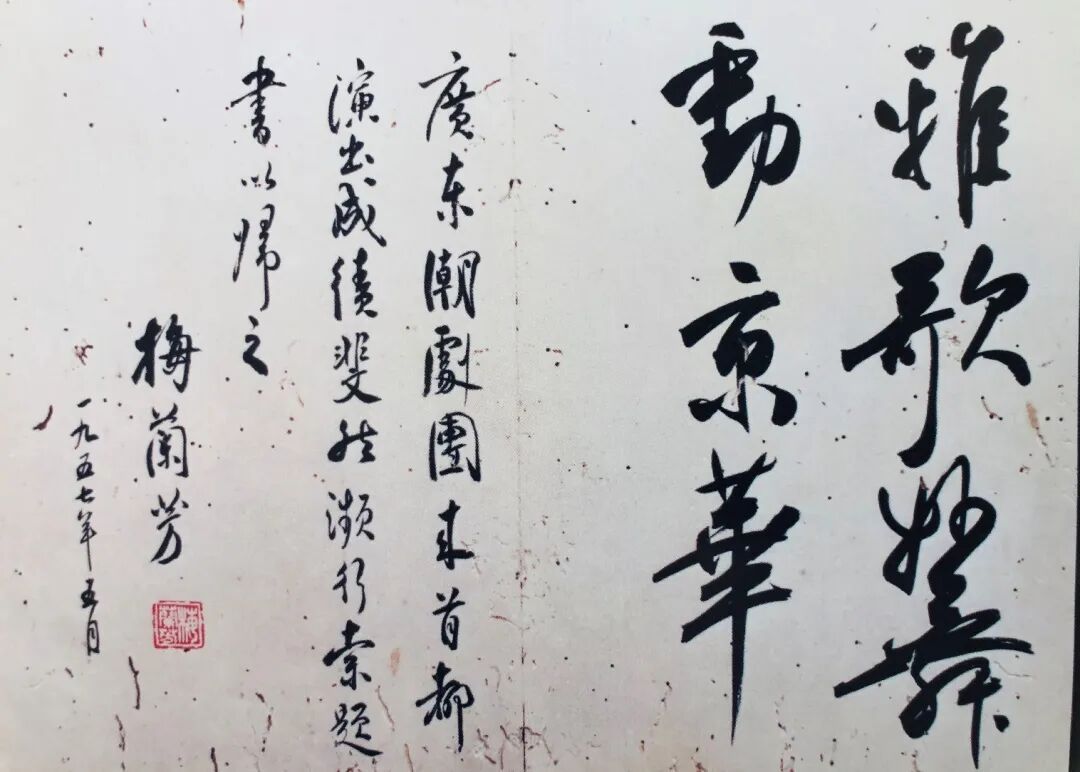 雅歌妙舞
動京華
廣東潮劇團来首都
演出成績斐然瀕行索題
書以歸之
梅蘭芳
一九五七年五月